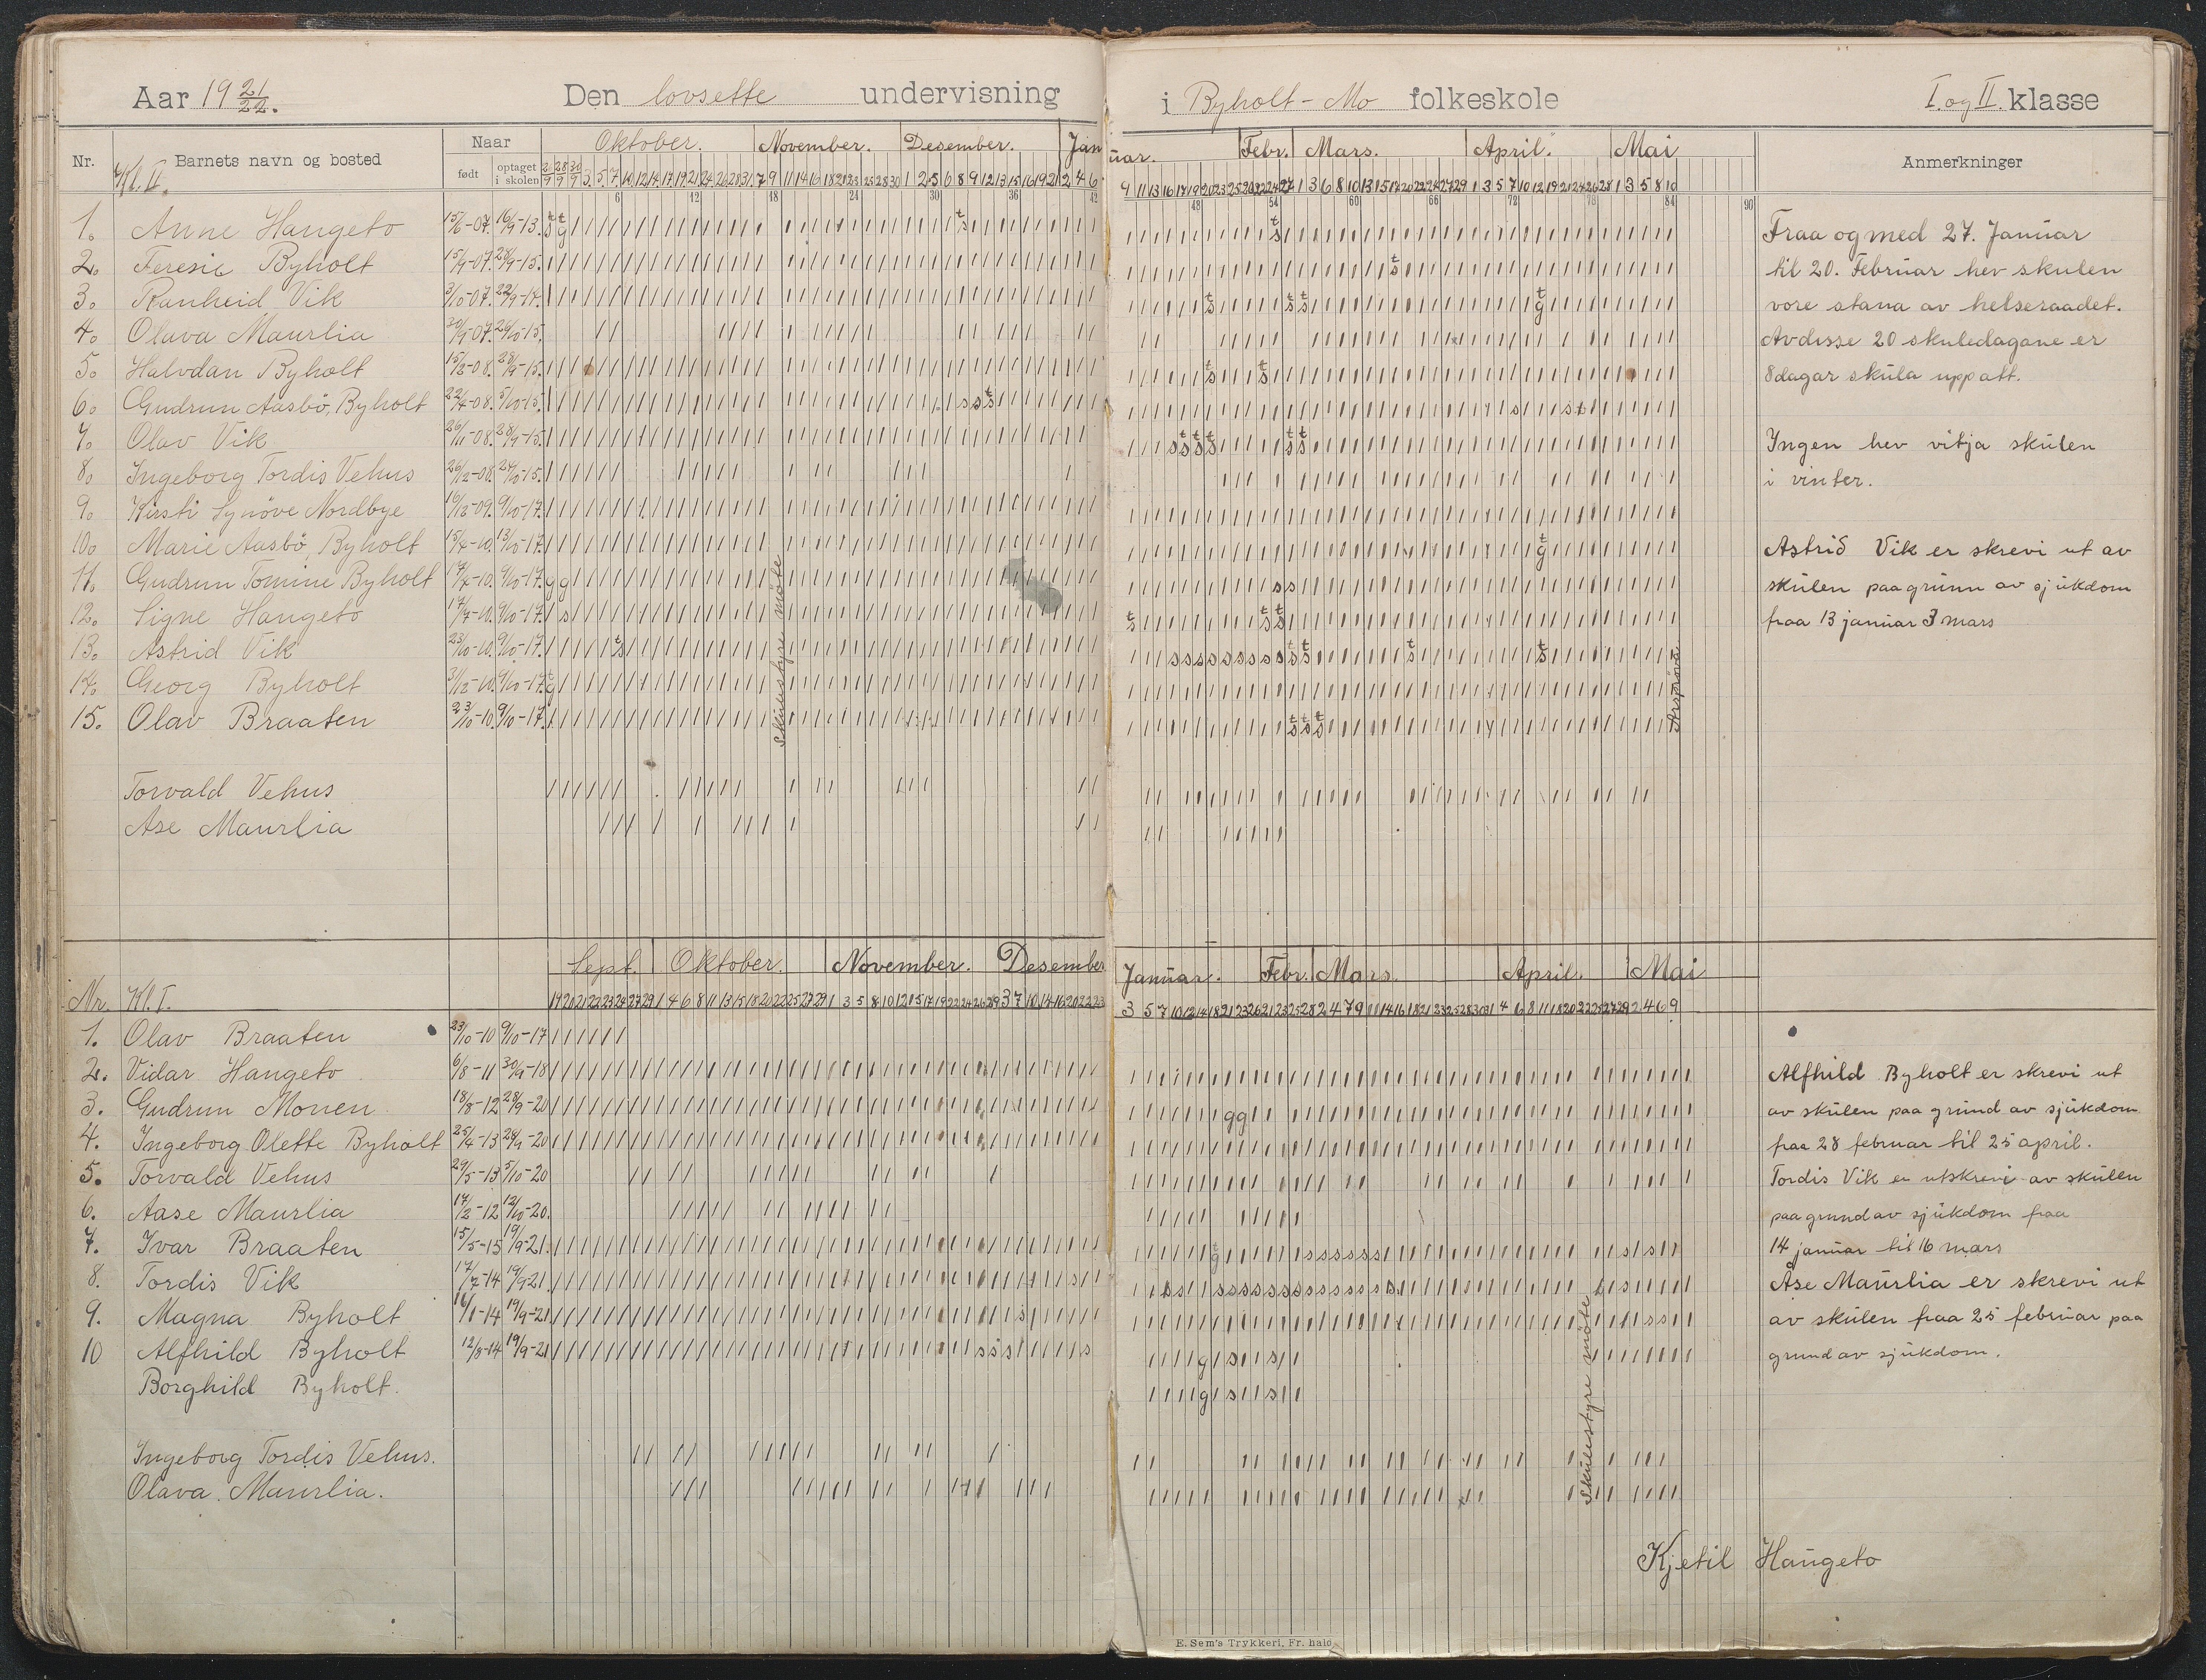 Aar 19 21/22. Den lovsette undervisning i Byholt-Mo folkeskole I. og II. klasse
Nr. Kl. II. Barnets navn og bosted Naar født optaget i skolen Oktober. November. Desember. Januar. Febr. Mars. April. Mai Anmerkninger
6 12 18 24 30 36 42 48 54 60 66 72 78 84 90
1. Anne Hangeto 15/6-07. 16/9-13.
2. Feresie Byholt 15/9-07. 28/9-15.
3. Ranheid Vik 3/10-07. 22/9-14.
4. Olava Maurlia 30/9-07. 26/10-15.
5. Halvdan Byholt 15/2-08. 28/9-15.
6. Gudrun Aasbö, Byholt 22/4-08. 5/10-15.
7. Olav Vik 26/11-08. 28/9-15.
8. Ingeborg Tordis Vehus 26/12-08. 26/10-15.
9. Kirsti Synöve Nordbye 16/12-09. 9/10-17.
10. Marie Aasbö, Byholt 15/4-10. 13/10-17.
11. Gudrun Tomine Byholt 17/7-10. 9/10-17.
12. Signe Hangeto 17/7-10. 9/10-17.
13. Astrid Vik 23/10-10. 9/10-17.
14. Georg Byholt 31/12-10. 9/10-17.
15. Olav Braaten 23/10-10. 9/10-17.
Torvald Vehus
Ase Maurlia
Skulestyre möte
Årsprøva
Fraa og med 27. Januar
til 20. Februar hev skulen
vore stana av helseraadet.
Av disse 20 skuledagane er
8 dagar skula upp att.
Ingen hev vitja skulen
i vinter.
Astrid Vik er skrevi ut av
skulen paa grunn av sjukdom
fraa 13 januar 3 mars
Nr. Kl. I. Sept. Oktober. November. Desember Januar. Febr. Mars. April. Mai
1. Olav Braaten 23/10-10 9/10-17
2. Vidar Hangeto 6/8-11 30/9-18
3. Gudrun Monen 18/8-12 28/9-20
4. Ingeborg Olette Byholt 25/4-13 28/9-20
5. Torvald Vehus 29/5-13 5/10-20
6. Aase Maurlia 14/2-12 12/10-20.
7. Ivar Braaten 15/5-15 19/9-21.
8. Tordis Vik 17/7-14 19/9-21.
9. Magna Byholt 16/1-14 19/9-21
10 Alfhild Byholt 12/8-14 19/9-21
Borghild Byholt.
Ingeborg Tordis Vehus.
Olava. Maurlia.
Skulestyre möte
Alfhild Byholt er skrevi ut
av skulen paa grund av sjukdom
fraa 28 februar til 25 april.
Tordis Vik er utskrevi av skulen
paa grund av sjukdom fraa
14 januar til 16 mars
Åse Maurlia er skrevi ut
av skulen fraa 25 februar paa
grund av sjukdom.
Kjetil Hangeto
E. Sem's Trykkeri, Fr. hald